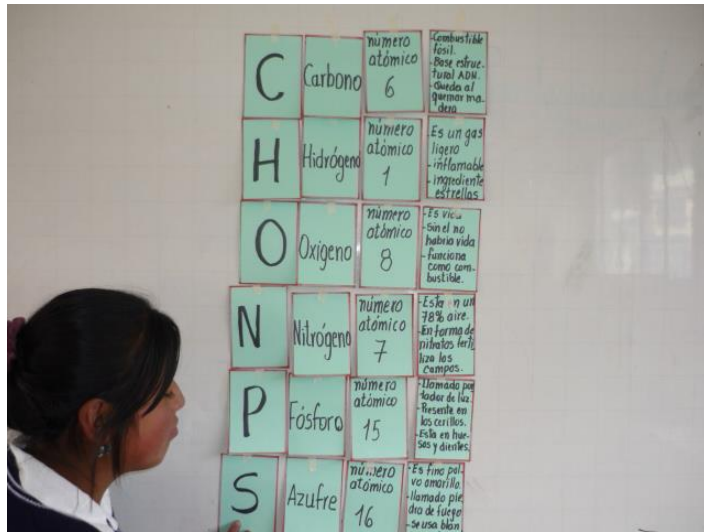 C
Carbono
número
atómico
6
-Combustible
fósil.
-Base estruc-
tural ADN.
-Queda al
quemar ma-
dera
H
Hidrógeno
número
atómico
1
-Es un gas
ligero
-inflamable
-ingrediente
estrellas
O
Oxigeno
número
atómico
8
-Es vida
-Sin el no
habria vida
-funciona
como com-
bustible.
N
Nitrógeno
número
atómico
7
-Esta en un
78% aire.
-En forma de
nitratos ferti
liza los
campos.
P
Fósforo
número
atómico
15
-llamado por
tador de luz.
-Presente en
los cerillos.
-Esta en hue-
sos y dientes.
S
Azufre
número
atómico
16
-Es fino pol-
vo amarillo.
-llamado pie
dra de fuego
-se usa